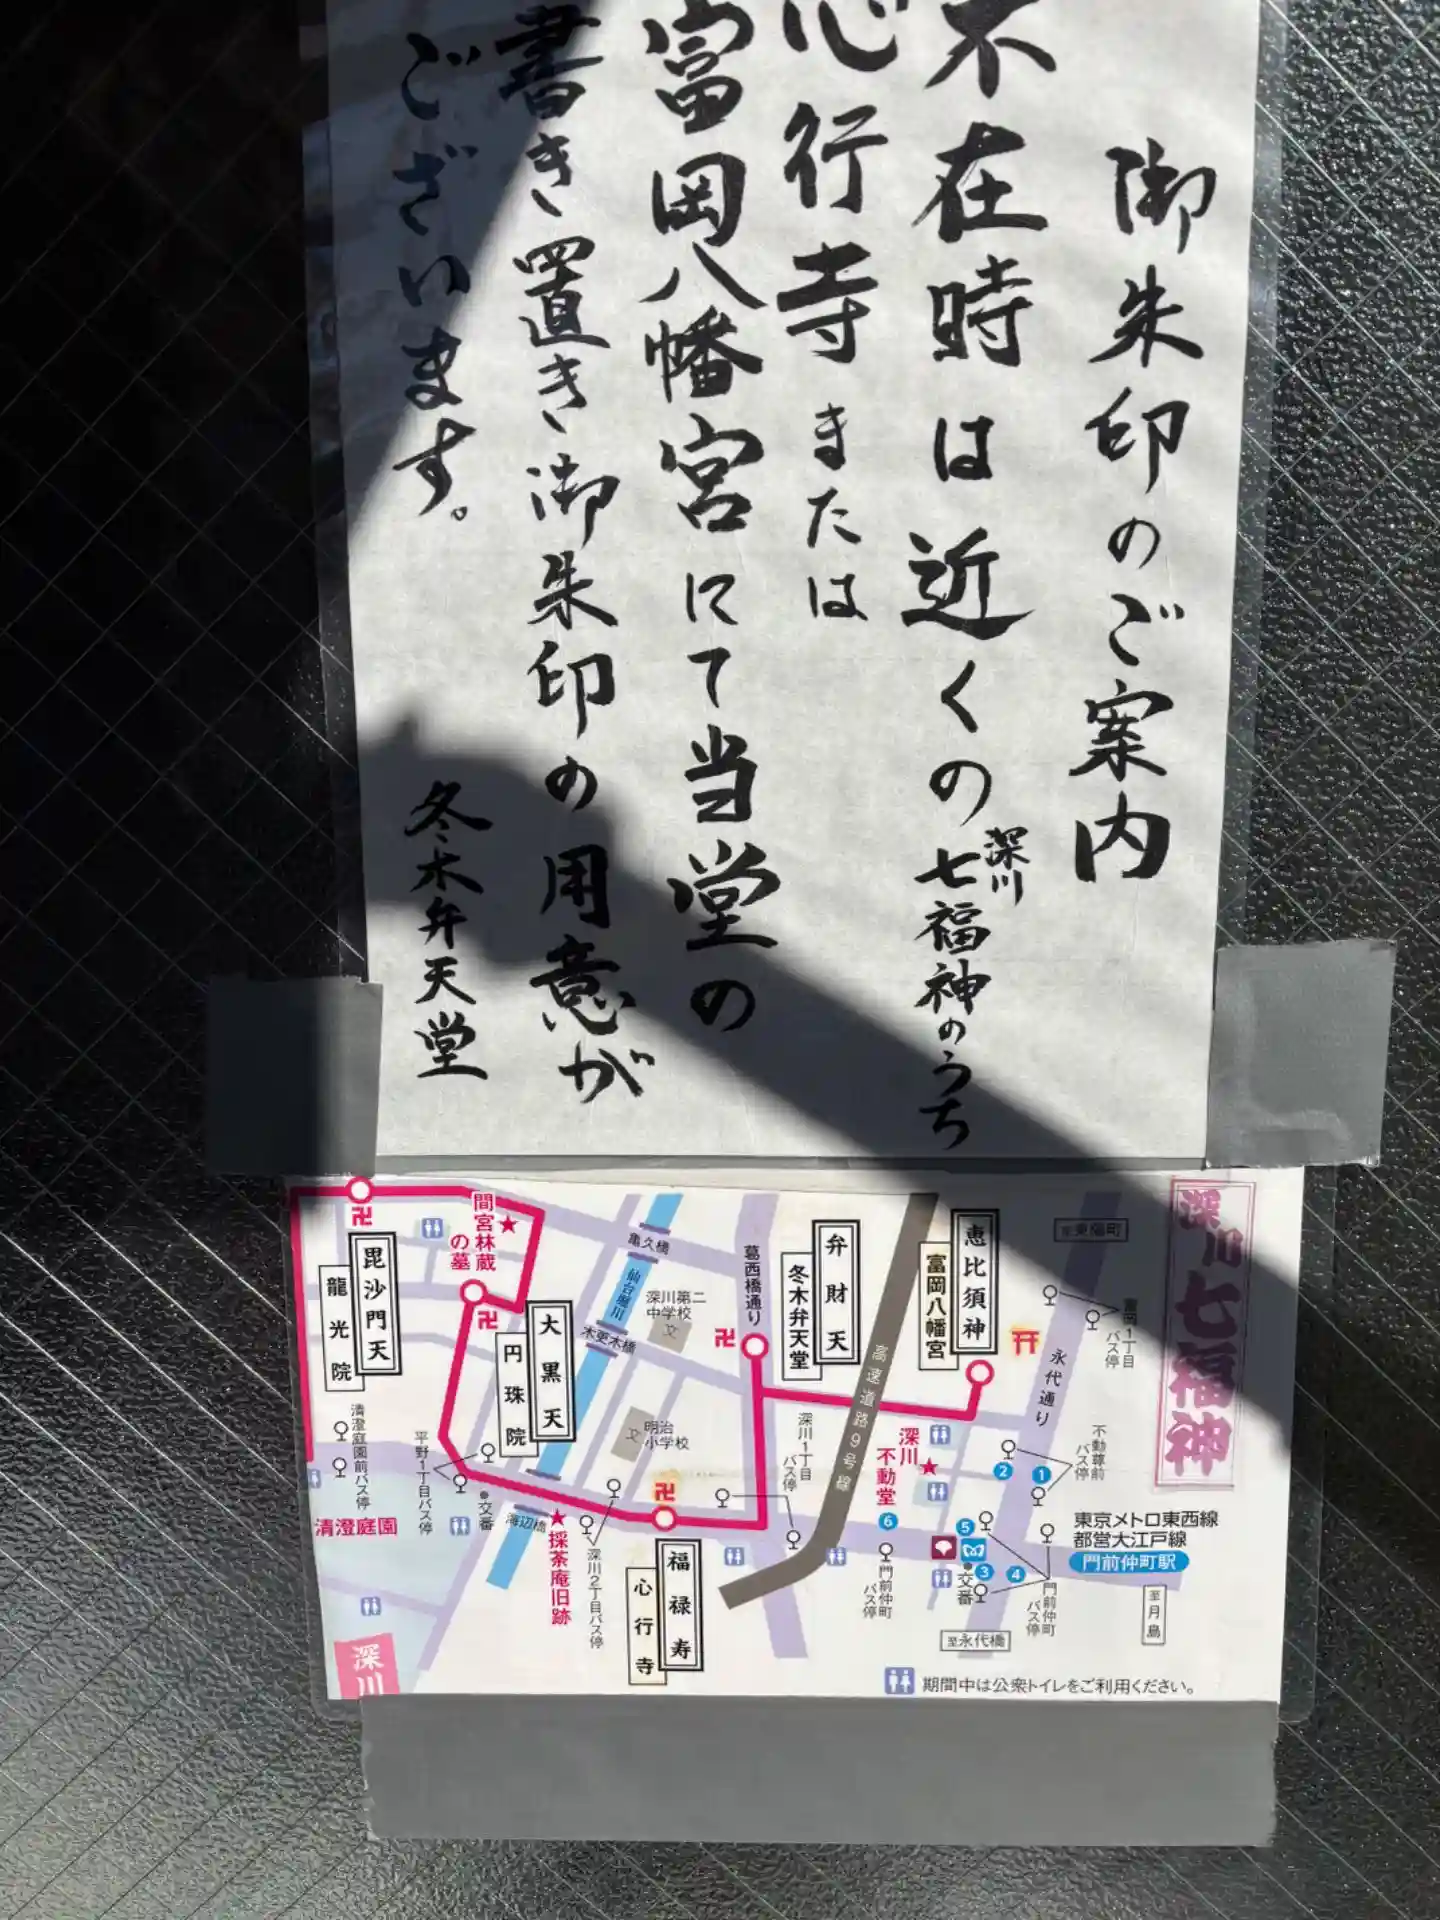 御朱印のご案内
不在時は近くの深川七福神のうち
心行寺または
富岡八幡宮にて当堂の
書き置き御朱印の用意が
ございます。
冬木弁天堂
深川七福神
至東陽町
富岡1丁目
バス停
永代通り
恵比須神
富岡八幡宮
高速道路9号線
弁財天
冬木弁天堂
葛西橋通り
亀久橋
仙台堀川
深川第二
中学校
文
木更木橋
大黒天
円珠院
間宮林蔵
の墓
毘沙門天
龍光院
清澄庭園前バス停
平野1丁目バス停
交番
清澄庭園
海辺橋
採茶庵旧跡
深川2丁目バス停
明治
小学校
文
福禄寿
心行寺
深川1丁目
バス停
深川
不動堂
不動尊前
バス停
2
1
6
5
3
4
門前仲町
バス停
交番
門前仲町
バス停
東京メトロ東西線
都営大江戸線
門前仲町駅
至月島
至永代橋
期間中は公衆トイレをご利用ください。
深川